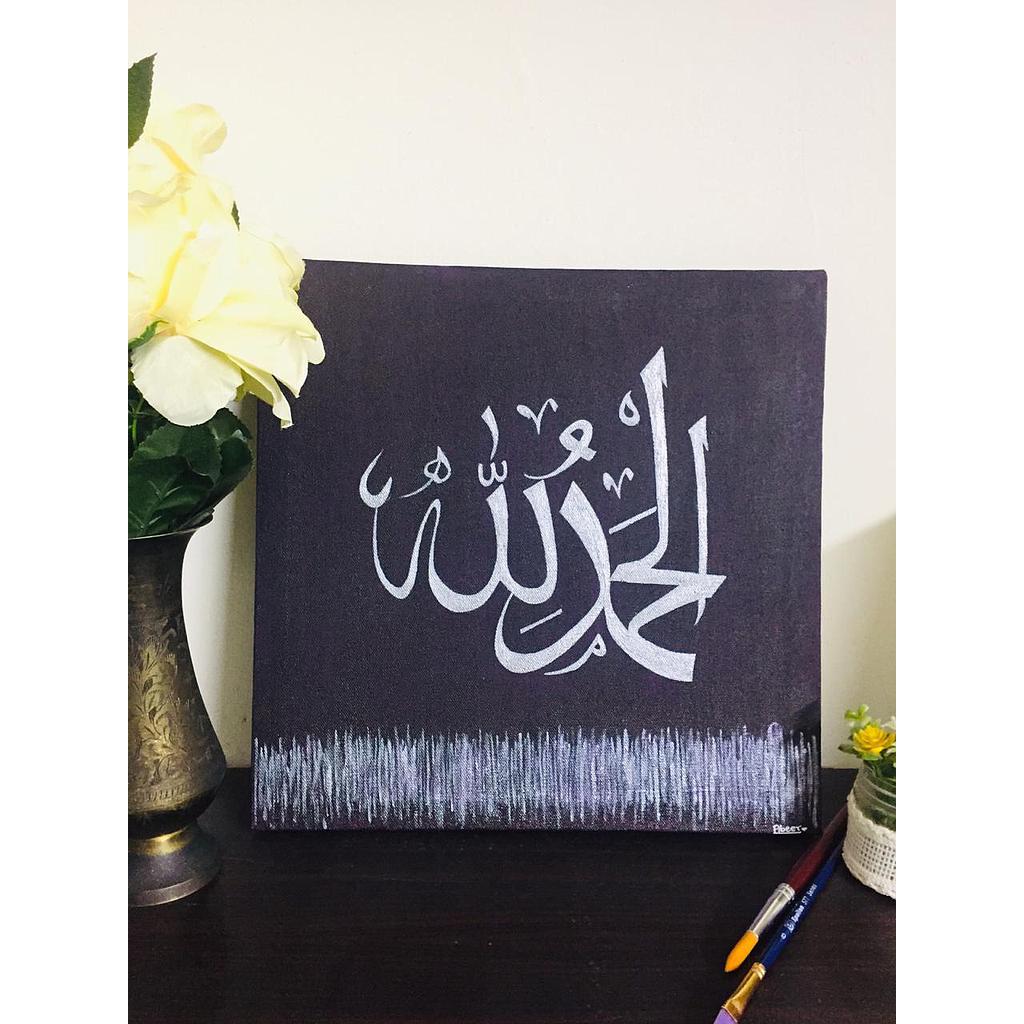 الحَمْدُ لِلّٰهِ
Abeer